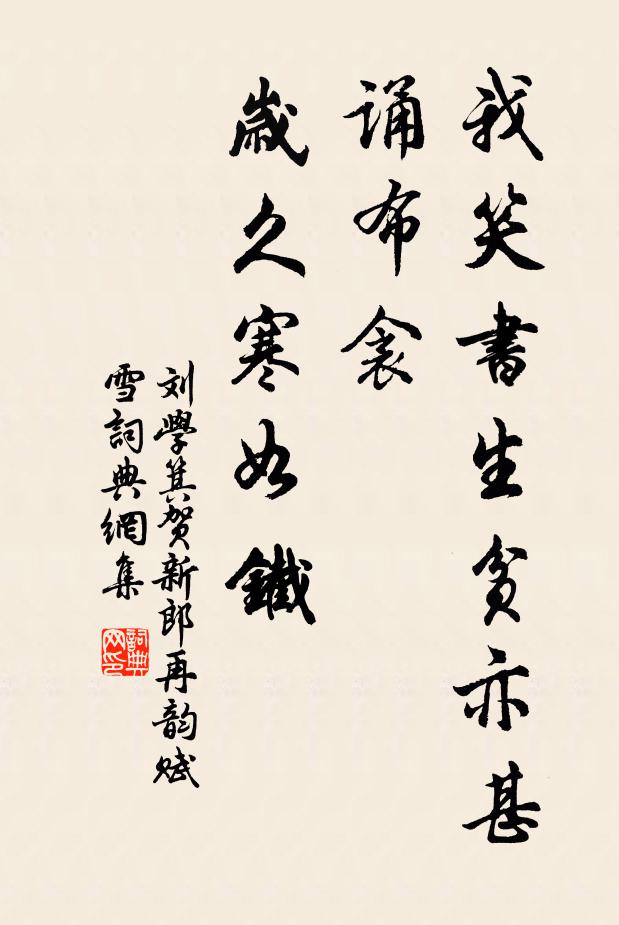 我笑書生贫亦甚
诵布衾
歲久寒如鐵
刘學箕贺新郎再韵赋
雪詞典網集
詞典网印